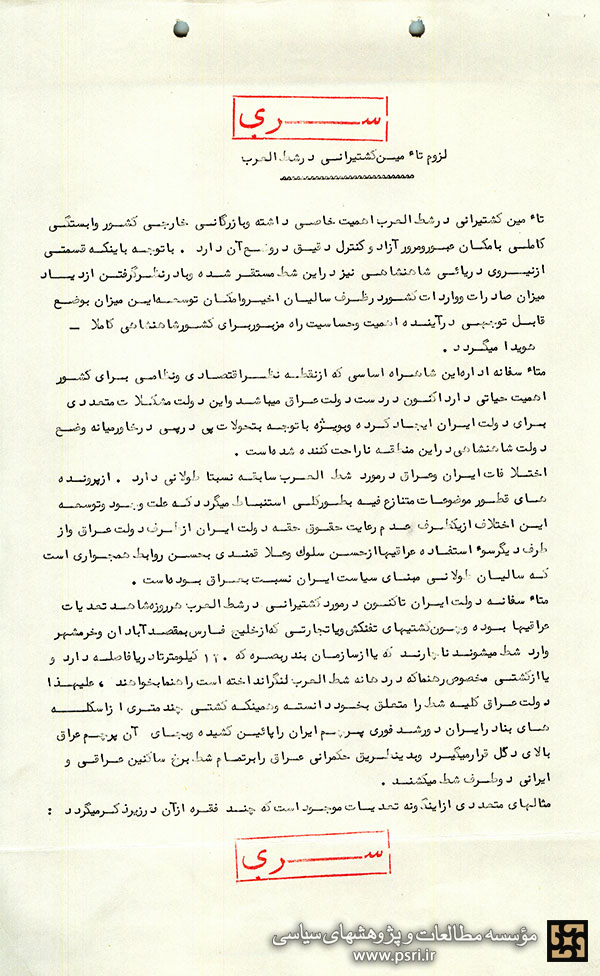 سری
لزوم تاء مین کشتیرانی در شط العرب
تاء مین کشتیرانی در شط العرب اهمیت خاصی داشته و بازرگانی خارجی کشور وابستگی
کاملی با مکان عبور و مرور آزاد و کنترل دقیق در وضع آن دارد . با توجه باینکه قسمتی
از نیروی دریائی شاهنشاهی نیز در این شط مستقر شده و با در نظر گرفتن ازدیاد
میزان صادرات و واردات کشور در ظرف سالیان اخیر و امکان توسعه این میزان بوضع
قابل توجهی در آینده اهمیت و حساسیت راه مزبور برای کشور شاهنشاهی کاملا –
هویدا میگردد .
متاء سفانه اداره این شاهراه اساسی که از نقطه نظر اقتصادی و نظامی برای کشور
اهمیت حیاتی دارد اکنون در دست دولت عراق میباشد و این دولت مشکلات متعددی
برای دولت ایران ایجاد کرده و بویژه با توجه بتحولات پی در پی در خاورمیانه وضع
دولت شاهنشاهی در این منطقه ناراحت کننده شده است .
اختلافات ایران و عراق در مورد شط العرب سابقه نسبتا طولانی دارد . از پرونده
های قطور موضوعات متنازع فیه بطور کلی استنباط میگردد که علت وجود و توسعه
این اختلاف از یکطرف عدم رعایت حقوق حقه دولت ایران از طرف دولت عراق و از
طرف دیگر سوء استفاده عراقیها از حسن سلوك و علاقمندی بحسن روابط همجواری است
که سالیان طولانی مبنای سیاست ایران نسبت بعراق بوده است .
متاء سفانه دولت ایران تاکنون در مورد کشتیرانی در شط العرب هر روزه شاهد تعدیات
عراقیها بوده و چون کشتیهای نفتکش و یا تجارتی که از خلیج فارس بمقصد آبادان و خرمشهر
وارد شط میشوند ناچارند که یا از سازمان بندر بصره که ۱۲۰ کیلومتر تا دریا فاصله دارد و
یا از کشتی مخصوص رهنما که در دهانه شط العرب لنگر انداخته است راهنما بخواهند ، علیهذا
دولت عراق کلیه شط را متعلق بخود دانسته و همینکه کشتی چند متری از اسکله
های بنادر ایران دور شد فوری پرچم ایران را پائین کشیده و بجای آن پرچم عراق
بالای دگل قرار میگیرد و بدینطریق حکمرانی عراق را بر تمام شط برخ ساکنین عراقی و
ایرانی دو طرف شط میکشند .
مثالهای متعددی از اینگونه تعدیات موجود است که چند فقره از آن در زیر ذکر میگردد :
سری
مؤسسه مطالعات و پژوهشهای سیاسی
www.psri.ir